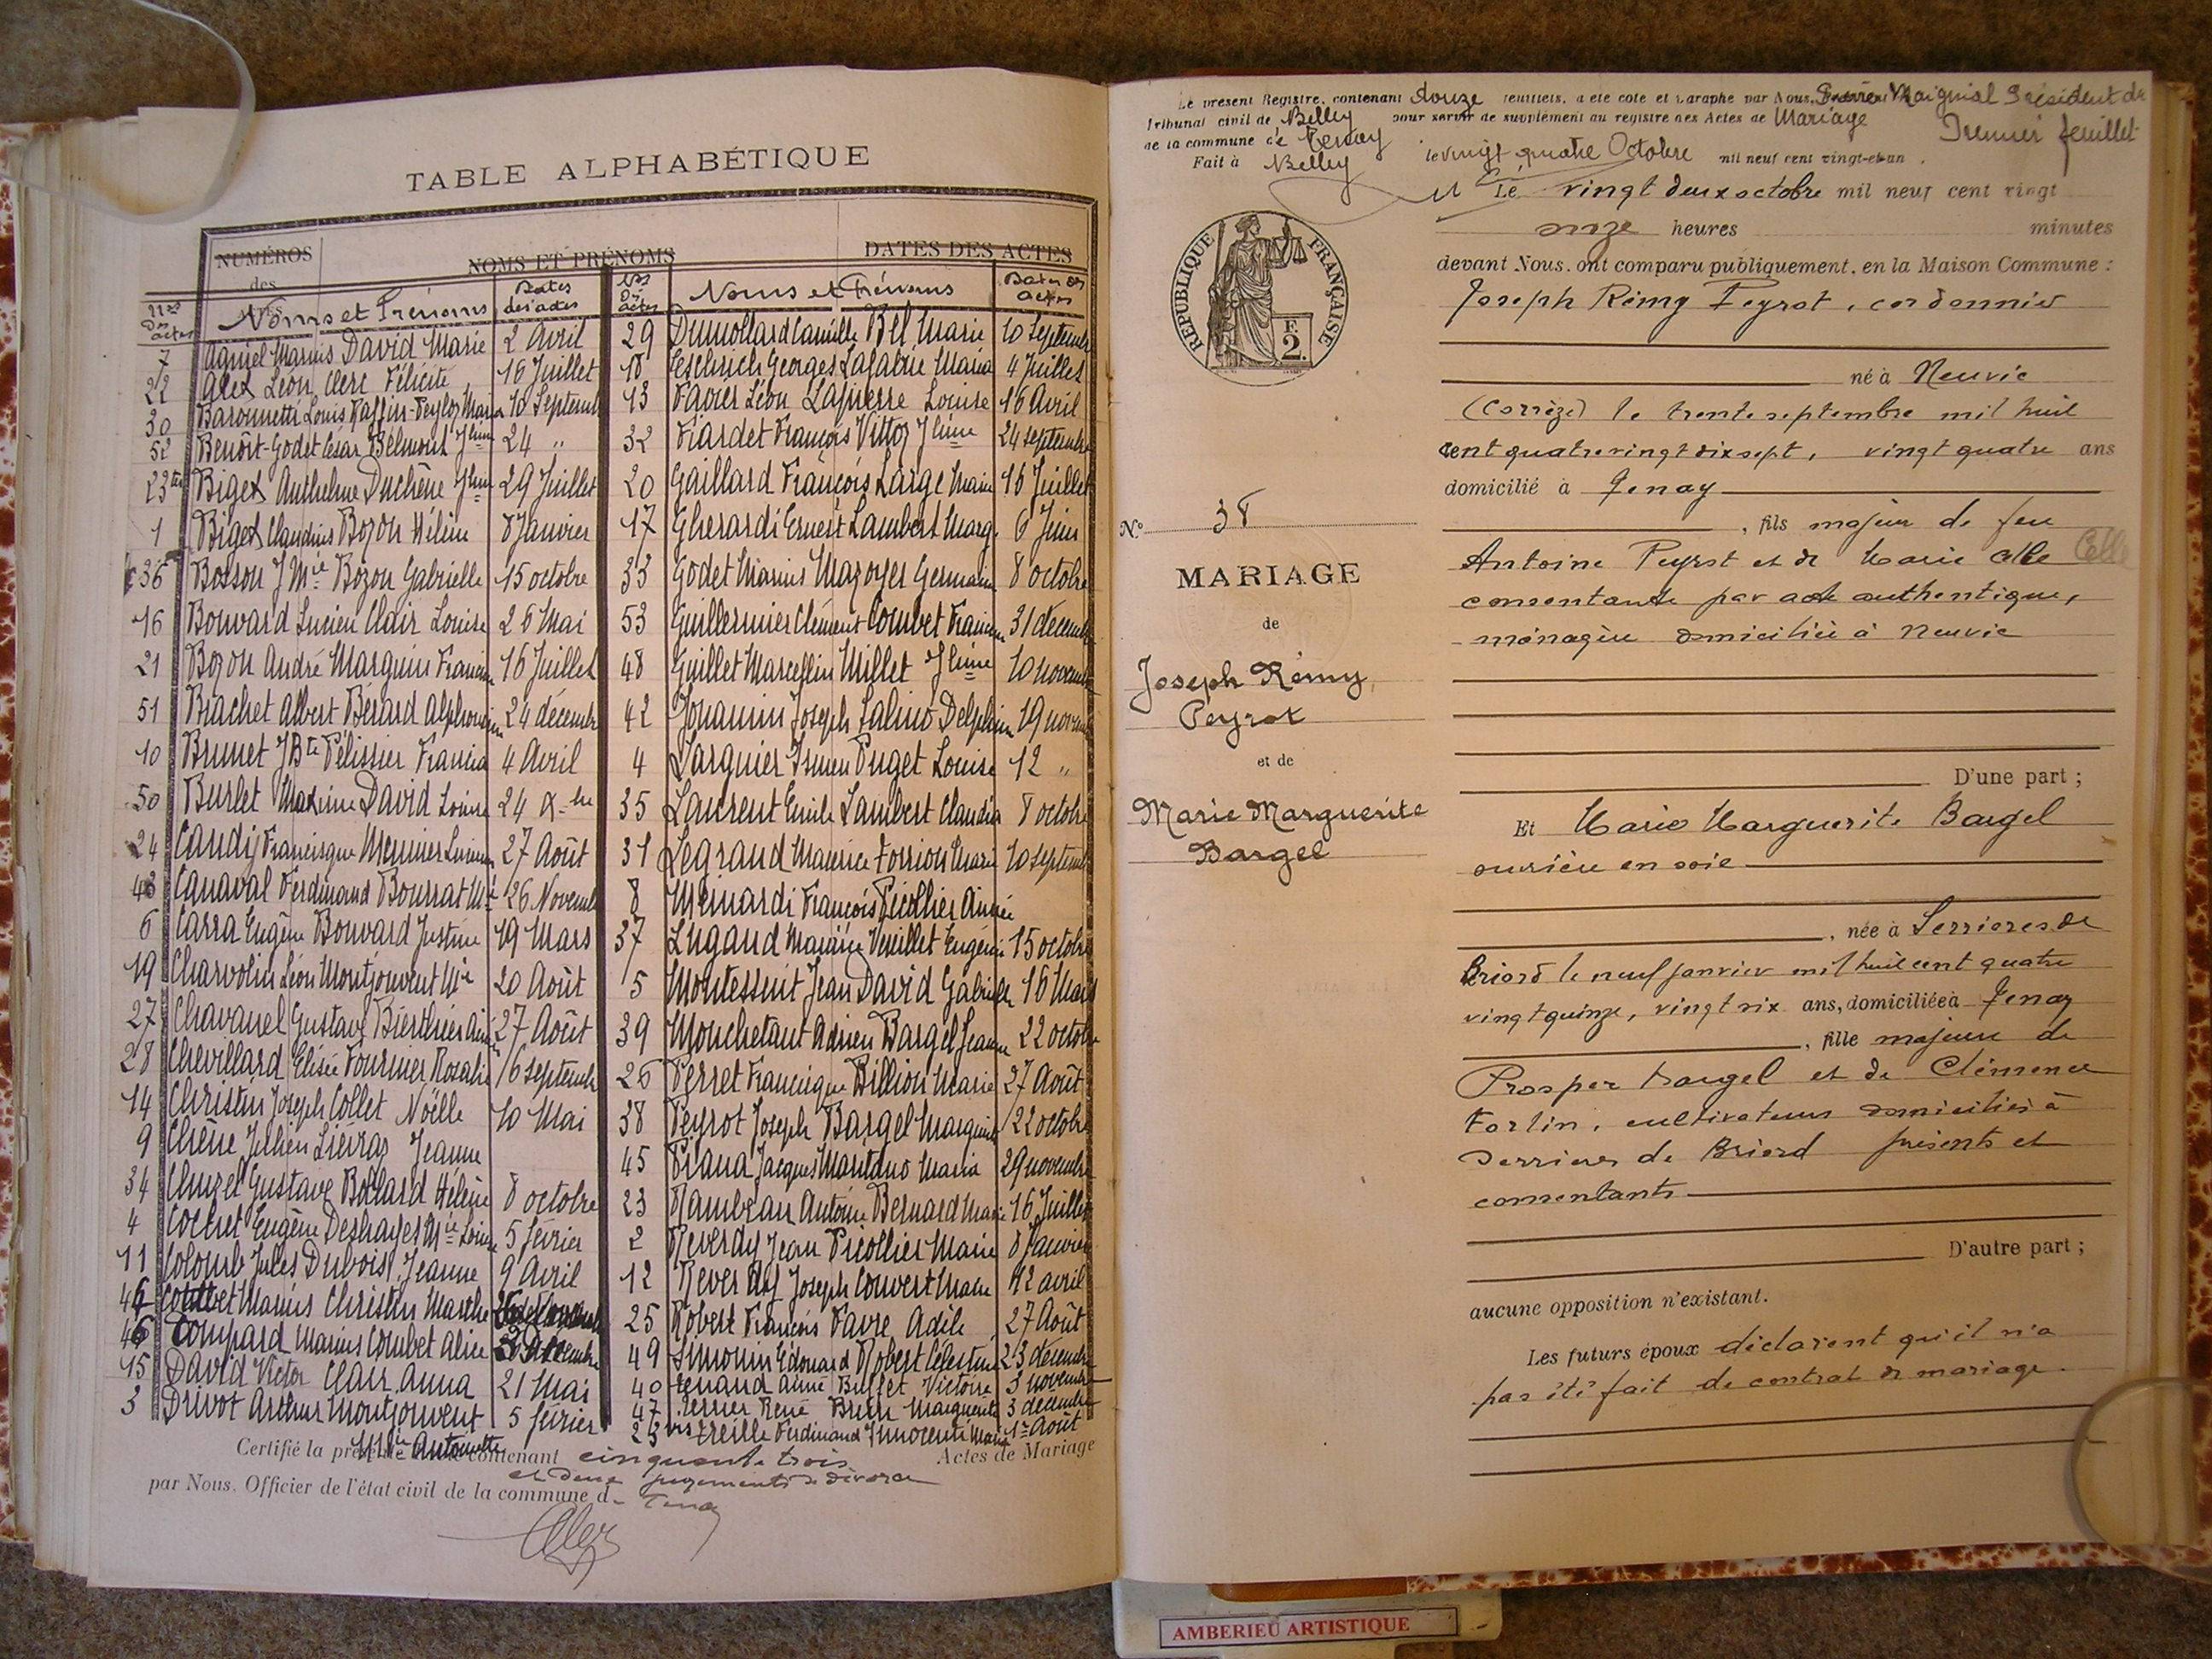 TABLE ALPHABÉTIQUE
NUMÉROS des NOMS ET PRÉNOMS DATES DES ACTES
Nos des actes Noms et Prénoms Dates des actes
7 Agniel Marius David Marie 2 Avril
22 Alex Léon Clerc Félicité 16 Juillet
30 Baronnetti Louis 10 Septemb
52 Benoît-Godet César Belmont 24 "
23 ter Biget Anthelme Duchêne 29 Juillet
1 Biget Claudius Bozon Hélène 8 Janvier
36 Bosson J Mie Bozon Gabrielle 15 octobre
16 Bouvard Lucien Clair Louise 26 Mai
21 Bozon André Marguin 16 Juillet
51 Brachet Albert Bérard 24 décembre
10 Brunet J Bte Pélissier Francia 4 Avril
50 Burlet Maxime David Louise 24 Xbre
24 Candy Francisque Meunier 27 Août
43 Canaval Ferdinand Bourrat Mie 26 Novemb
6 Carra Eugène Bouvard Justine 19 Mars
19 Charvolin Léon Montjouvent Mie 20 Août
27 Chavanel Gustave 27 Août
28 Chevillard Elisée Fournier Rosalie 6 septembre
14 Christin Joseph Collet Noëlle 10 Mai
9 Chêne Julien Liévraz Jeanne
34 Cluzel Gustave Hélène 8 octobre
4 Cochet Eugène Deshayes Mie Louise 5 février
11 Colomb Jules Dubois Jeanne 9 Avril
Marius Christin Marthe
46 Compard Marius Combet Alice
15 David Victor Clair Anna 21 Mai
3 Drivot Arthur Montjouvent 5 février
Mie Antoinette
Nos des actes Noms et Prénoms Dates des actes
29 Dumollard Camille Bel Marie 10 Septembre
18 Eschrich Georges Marie 4 Juillet
13 Favier Léon Lapierre Louise 16 Avril
32 Fiardet François Vittoz 24 septembre
20 Gaillard François Large Marie 16 Juillet
17 Gherardi Ernest Lambert Marg. 6 Juin
33 Godet Marius Mazoyer Germain 8 octobre
53 Guillermier Clément Combet 31 décembre
48 Guillet Marcellin Millet 10 novembre
42 Jouannin Joseph Salino Delphine 19 novembre
4 Larguier Puget Louise 12 "
35 Laurent Emile Lambert Claudia 8 octobre
31 Legrand Maurice Marie 10 septembre
8 Meinardi François Picollier Aimée
37 Lugand Maurice Eugénie 15 octobre
5 Montessuit Jean David Gabrielle 16 Mars
39 Mouchetant Adrien Bargel Jeanne 22 octobre
26 Perret Francisque Billion Marie 27 Août
38 Peyrot Joseph Bargel Marguerite 22 octobre
45 Piana Jacques Montano Maria 29 novembre
23 Rambeau Antoine Bernard Marie 16 Juillet
2 Reverdy Jean Picollier Marie 8 Janvier
12 Reverdy Joseph Convert Marie 12 avril
25 Robert François Favre Adèle 27 Août
49 Simonin Edouard Robert Célestine 23 décembre
40 Tenand Aimé Buffet Victoire 3 novembre
47 René Marguerite 3 décembre
23 bis Treille Ferdinand Innocenti Marie 1er Août
Certifié la présente contenant cinquante trois Actes de Mariage
et deux jugements de divorce
par Nous, Officier de l'état civil de la commune de Tenay
Le présent Registre, contenant douze feuillets, a été coté et paraphé par Nous, Maignial Président du
Tribunal civil de Belley pour servir de supplément au registre des Actes de Mariage
de la commune de Tenay Premier feuillet
Fait à Belley le vingt quatre Octobre mil neuf cent vingt-et-un.
Le vingt deux octobre mil neuf cent vingt et un
onze heures minutes
devant Nous, ont comparu publiquement, en la Maison Commune :
Joseph Rémy Peyrot, cordonnier
né à Neuvic
(Corrèze) le trente septembre mil huit
cent quatre vingt dix sept, vingt quatre ans
domicilié à Tenay
, fils majeur de feu
Antoine Peyrot et de Marie Celle
consentante par acte authentique,
ménagère domiciliée à Neuvic
D'une part ;
Et Marie Marguerite Bargel
ouvrière en soie
, née à Serrières de
Briord le neuf janvier mil huit cent quatre
vingt quinze, vingt six ans, domiciliée à Tenay
, fille majeure de
Prosper Bargel et de Clémence
Forlin, cultivateurs domiciliés à
Serrières de Briord présents et
consentants
D'autre part ;
aucune opposition n'existant.
Les futurs époux déclarent qu'il n'a
pas été fait de contrat de mariage.
RÉPUBLIQUE FRANÇAISE
F.
2.
No 38
MARIAGE
de
Joseph Rémy
Peyrot
et de
Marie Marguerite
Bargel
AMBERIEU ARTISTIQUE